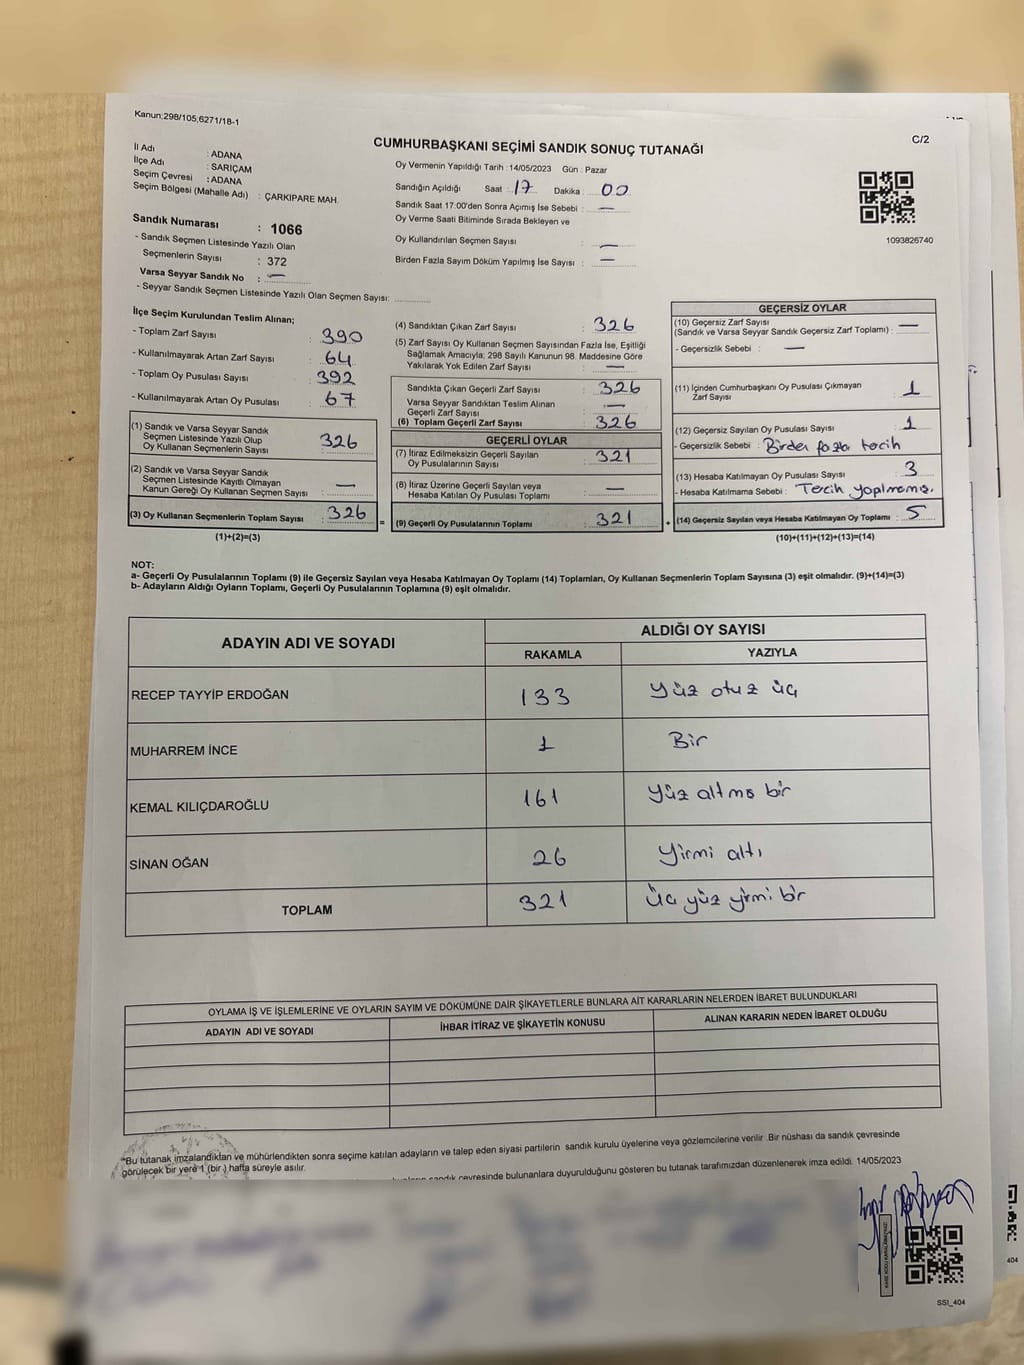 Kanun;298/105;6271/18-1
C/2
CUMHURBAŞKANI SEÇİMİ SANDIK SONUÇ TUTANAĞI
İl Adı : ADANA
İlçe Adı : SARIÇAM
Seçim Çevresi : ADANA
Seçim Bölgesi (Mahalle Adı) : ÇARKIPARE MAH.
Sandık Numarası : 1066
- Sandık Seçmen Listesinde Yazılı Olan
Seçmenlerin Sayısı : 372
Varsa Seyyar Sandık No : —
- Seyyar Sandık Seçmen Listesinde Yazılı Olan Seçmen Sayısı:
Oy Vermenin Yapıldığı Tarih :14/05/2023 Gün : Pazar
Sandığın Açıldığı Saat : 17 Dakika : 00
Sandık Saat 17.00'den Sonra Açımış İse Sebebi : —
Oy Verme Saati Bitiminde Sırada Bekleyen ve
Oy Kullandırılan Seçmen Sayısı : —
Birden Fazla Sayım Döküm Yapılmış İse Sayısı : —
1093826740
İlçe Seçim Kurulundan Teslim Alınan;
- Toplam Zarf Sayısı : 390
- Kullanılmayarak Artan Zarf Sayısı : 64
- Toplam Oy Pusulası Sayısı : 392
- Kullanılmayarak Artan Oy Pusulası : 67
(1) Sandık ve Varsa Seyyar Sandık
Seçmen Listesinde Yazılı Olup
Oy Kullanan Seçmenlerin Sayısı : 326
(2) Sandık ve Varsa Seyyar Sandık
Seçmen Listesinde Kayıtlı Olmayan
Kanun Gereği Oy Kullanan Seçmen Sayısı : —
(3) Oy Kullanan Seçmenlerin Toplam Sayısı : 326
(1)+(2)=(3)
(4) Sandıktan Çıkan Zarf Sayısı : 326
(5) Zarf Sayısı Oy Kullanan Seçmen Sayısından Fazla İse, Eşitliği
Sağlamak Amacıyla; 298 Sayılı Kanunun 98. Maddesine Göre
Yakılarak Yok Edilen Zarf Sayısı : —
Sandıkta Çıkan Geçerli Zarf Sayısı : 326
Varsa Seyyar Sandıktan Teslim Alınan
Geçerli Zarf Sayısı : —
(6) Toplam Geçerli Zarf Sayısı : 326
GEÇERLİ OYLAR
(7) İtiraz Edilmeksizin Geçerli Sayılan
Oy Pusulalarının Sayısı : 321
(8) İtiraz Üzerine Geçerli Sayılan veya
Hesaba Katılan Oy Pusulası Toplamı : —
= (9) Geçerli Oy Pusulalarının Toplamı : 321 +
GEÇERSİZ OYLAR
(10) Geçersiz Zarf Sayısı
(Sandık ve Varsa Seyyar Sandık Geçersiz Zarf Toplamı) : —
- Geçersizlik Sebebi : —
(11) İçinden Cumhurbaşkanı Oy Pusulası Çıkmayan
Zarf Sayısı : 1
(12) Geçersiz Sayılan Oy Pusulası Sayısı : 1
- Geçersizlik Sebebi : Birden fazla tercih
(13) Hesaba Katılmayan Oy Pusulası Sayısı : 3
- Hesaba Katılmama Sebebi : Tercih yapılmamış.
(14) Geçersiz Sayılan veya Hesaba Katılmayan Oy Toplamı : 5
(10)+(11)+(12)+(13)=(14)
NOT:
a- Geçerli Oy Pusulalarının Toplamı (9) ile Geçersiz Sayılan veya Hesaba Katılmayan Oy Toplamı (14) Toplamları, Oy Kullanan Seçmenlerin Toplam Sayısına (3) eşit olmalıdır. (9)+(14)=(3)
b- Adayların Aldığı Oyların Toplamı, Geçerli Oy Pusulalarının Toplamına (9) eşit olmalıdır.
ADAYIN ADI VE SOYADI ALDIĞI OY SAYISI
RAKAMLA YAZIYLA
RECEP TAYYİP ERDOĞAN 133 Yüz otuz üç
MUHARREM İNCE 1 Bir
KEMAL KILIÇDAROĞLU 161 Yüz altmş bir
SİNAN OĞAN 26 Yirmi altı
TOPLAM 321 Üç yüz yirmi bir
OYLAMA İŞ VE İŞLEMLERİNE VE OYLARIN SAYIM VE DÖKÜMÜNE DAİR ŞİKAYETLERLE BUNLARA AİT KARARLARIN NELERDEN İBARET BULUNDUKLARI
ADAYIN ADI VE SOYADI İHBAR İTİRAZ VE ŞİKAYETİN KONUSU ALINAN KARARIN NEDEN İBARET OLDUĞU
"Bu tutanak imzalandıktan ve mühürlendikten sonra seçime katılan adayların ve talep eden siyasi partilerin sandık kurulu üyelerine veya gözlemcilerine verilir .Bir nüshası da sandık çevresinde
görülecek bir yere 1 (bir ) hafta süreyle asılır.
sandık çevresinde bulunanlara duyurulduğunu gösteren bu tutanak tarafımızdan düzenlenerek imza edildi. 14/05/2023
SSI_404
404